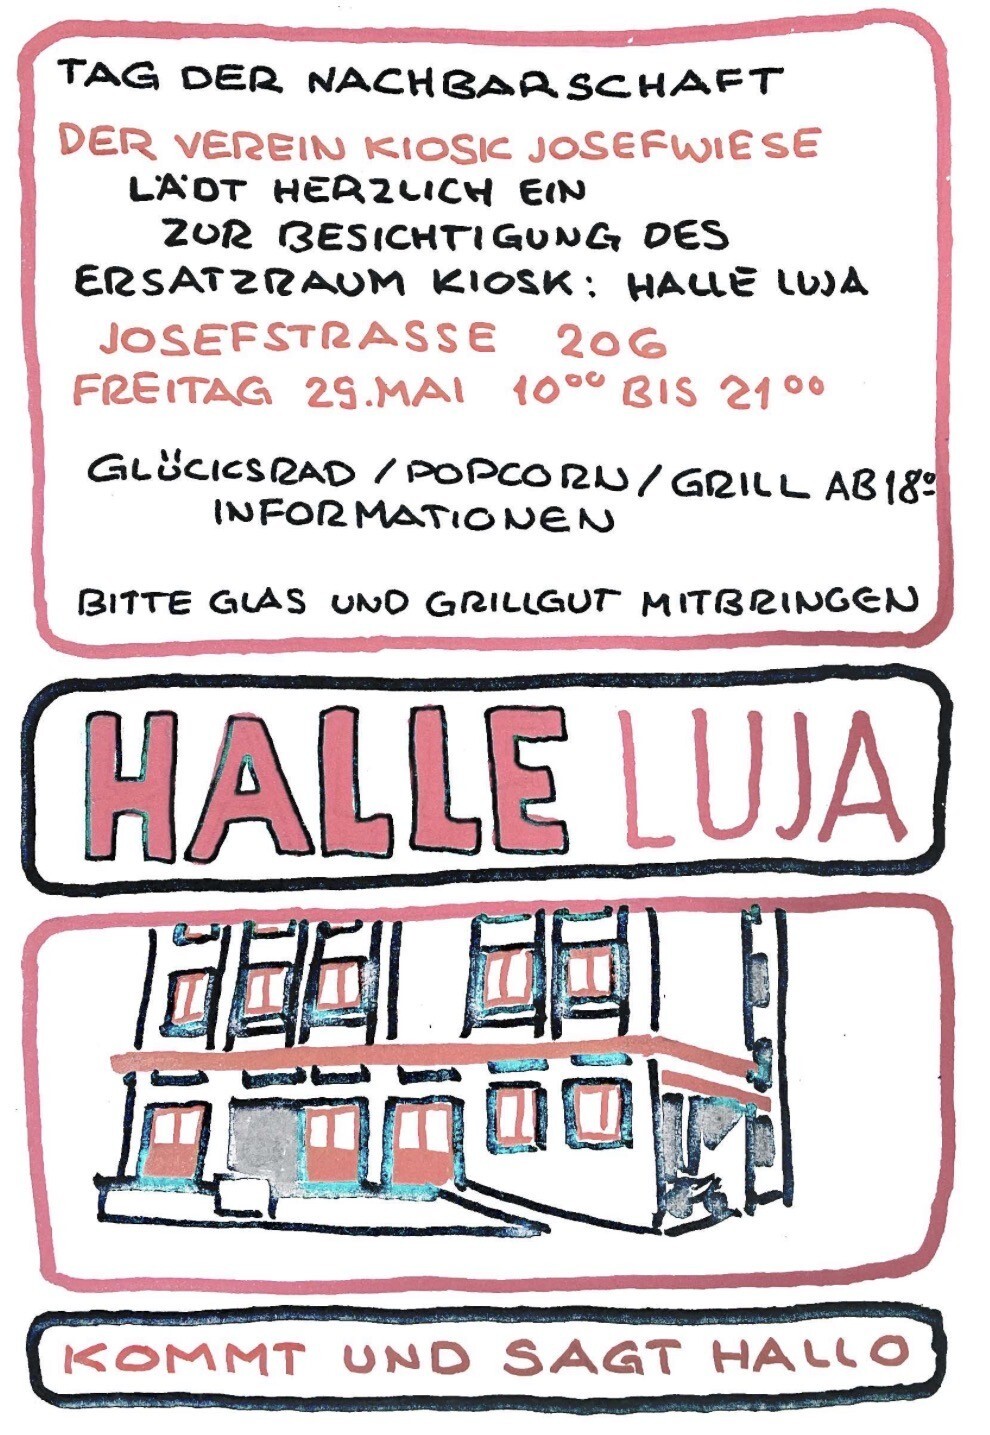 TAG DER NACHBARSCHAFT
DER VEREIN KIOSK JOSEFWIESE
LÄDT HERZLICH EIN
ZUR BESICHTIGUNG DES
ERSATZRAUM KIOSK: HALLE LUJA
JOSEFSTRASSE 206
FREITAG 29.MAI 10⁰⁰ BIS 21⁰⁰
GLÜCKSRAD / POPCORN / GRILL AB 18⁰
INFORMATIONEN
BITTE GLAS UND GRILLGUT MITBRINGEN
HALLE LUJA
KOMMT UND SAGT HALLO